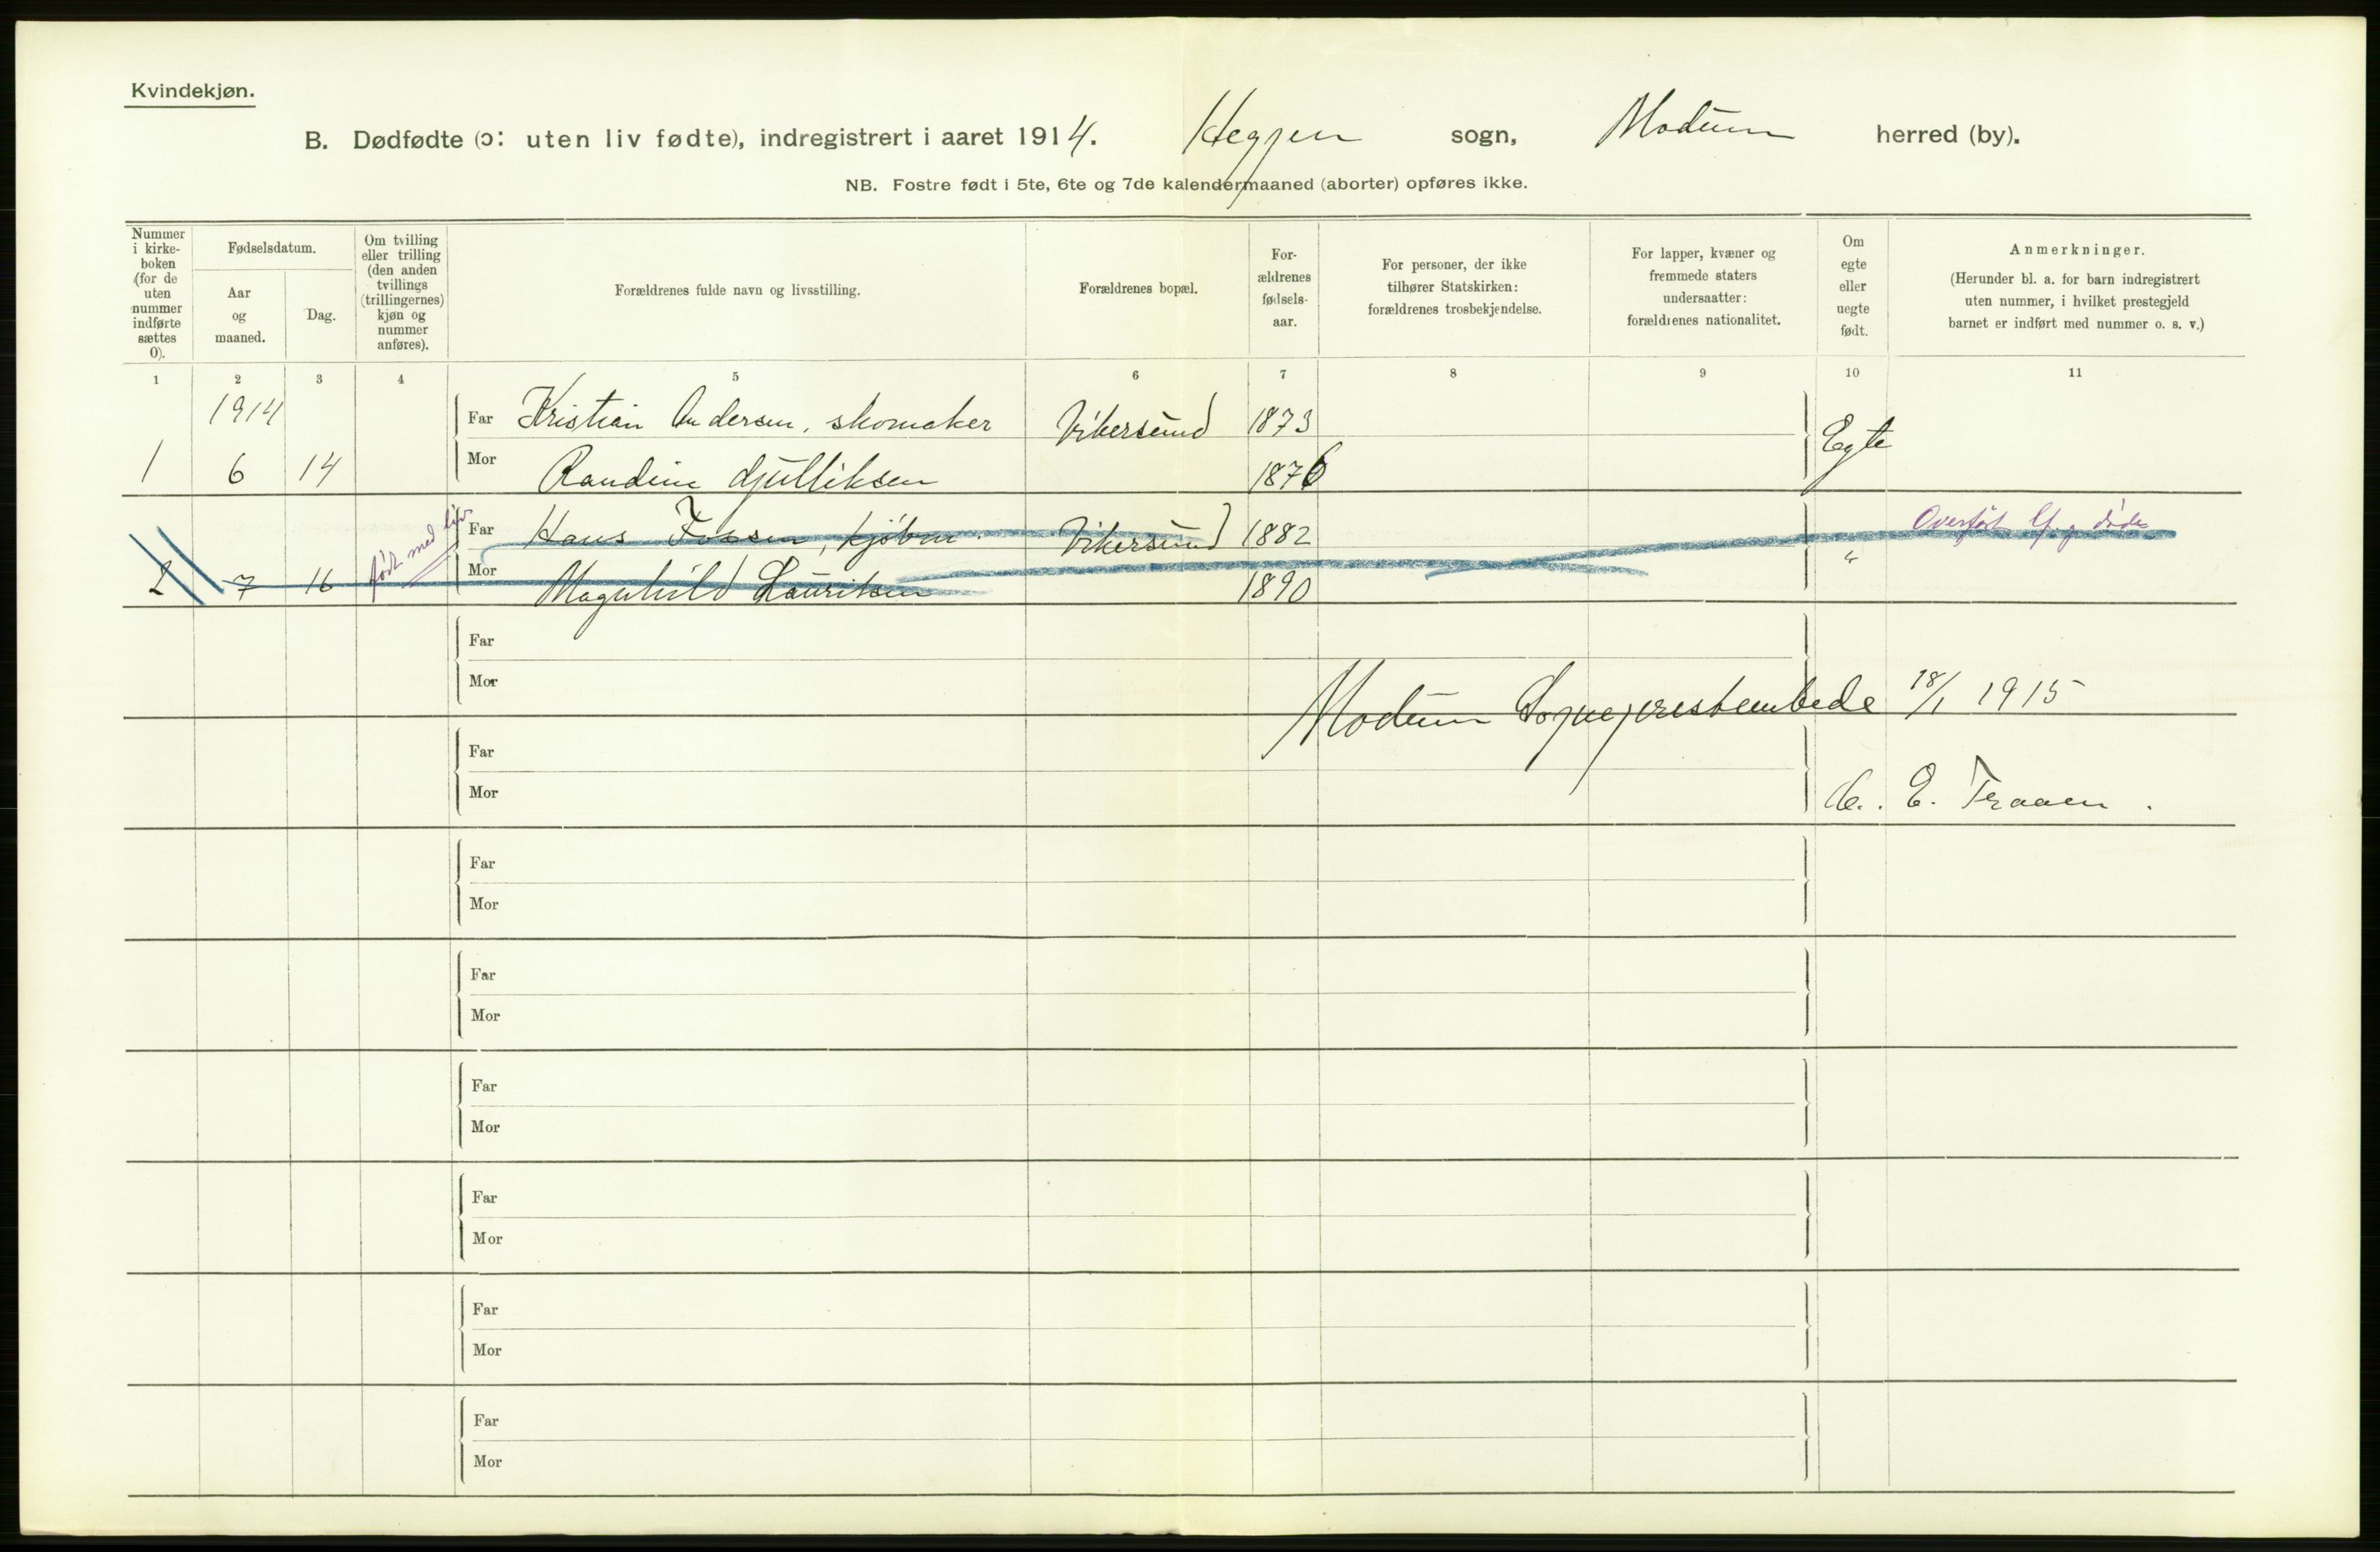 Kvindekjøn.
B. Dødfødte (ɔ: uten liv fødte), indregistrert i aaret 1914. Heggen sogn, Modum herred (by).
NB. Fostre født i 5te, 6te og 7de kalendermaaned (aborter) opføres ikke.
Nummer
i kirke-
boken
(for de
uten
nummer
indførte
sættes
0).
Fødselsdatum.
Aar
og
maaned.
Dag.
Om tvilling
eller trilling
(den anden
tvillings
(trillingernes)
kjøn og
nummer
anføres).
Forældrenes fulde navn og livsstilling.
Forældrenes bopæl.
For-
ældrenes
fødsels-
aar.
For personer, der ikke
tilhører Statskirken:
forældrenes trosbekjendelse.
For lapper, kvæner og
fremmede staters
undersaatter:
forældrenes nationalitet.
Om
egte
eller
uegte
født.
Anmerkninger.
(Herunder bl. a. for barn indregistrert
uten nummer, i hvilket prestegjeld
barnet er indført med nummer o. s. v.)
1 2 3 4 5 6 7 8 9 10 11
1914 Far Kristian Andersen, skomaker Vikersund 1873
Egte
1 6 14 Mor Randine Gulliksen 1876
født med liv
Far Hans Fossen, kjøbm. Vikersund 1882 Overført lf. og døde
2 7 16 Mor Magnhild Lauritsen 1890 "
Far
Mor
Modum Sogneprestembede 18/1 1915
Far
Mor
E. Traaen.
Far
Mor
Far
Mor
Far
Mor
Far
Mor
Far
Mor
Far
Mor